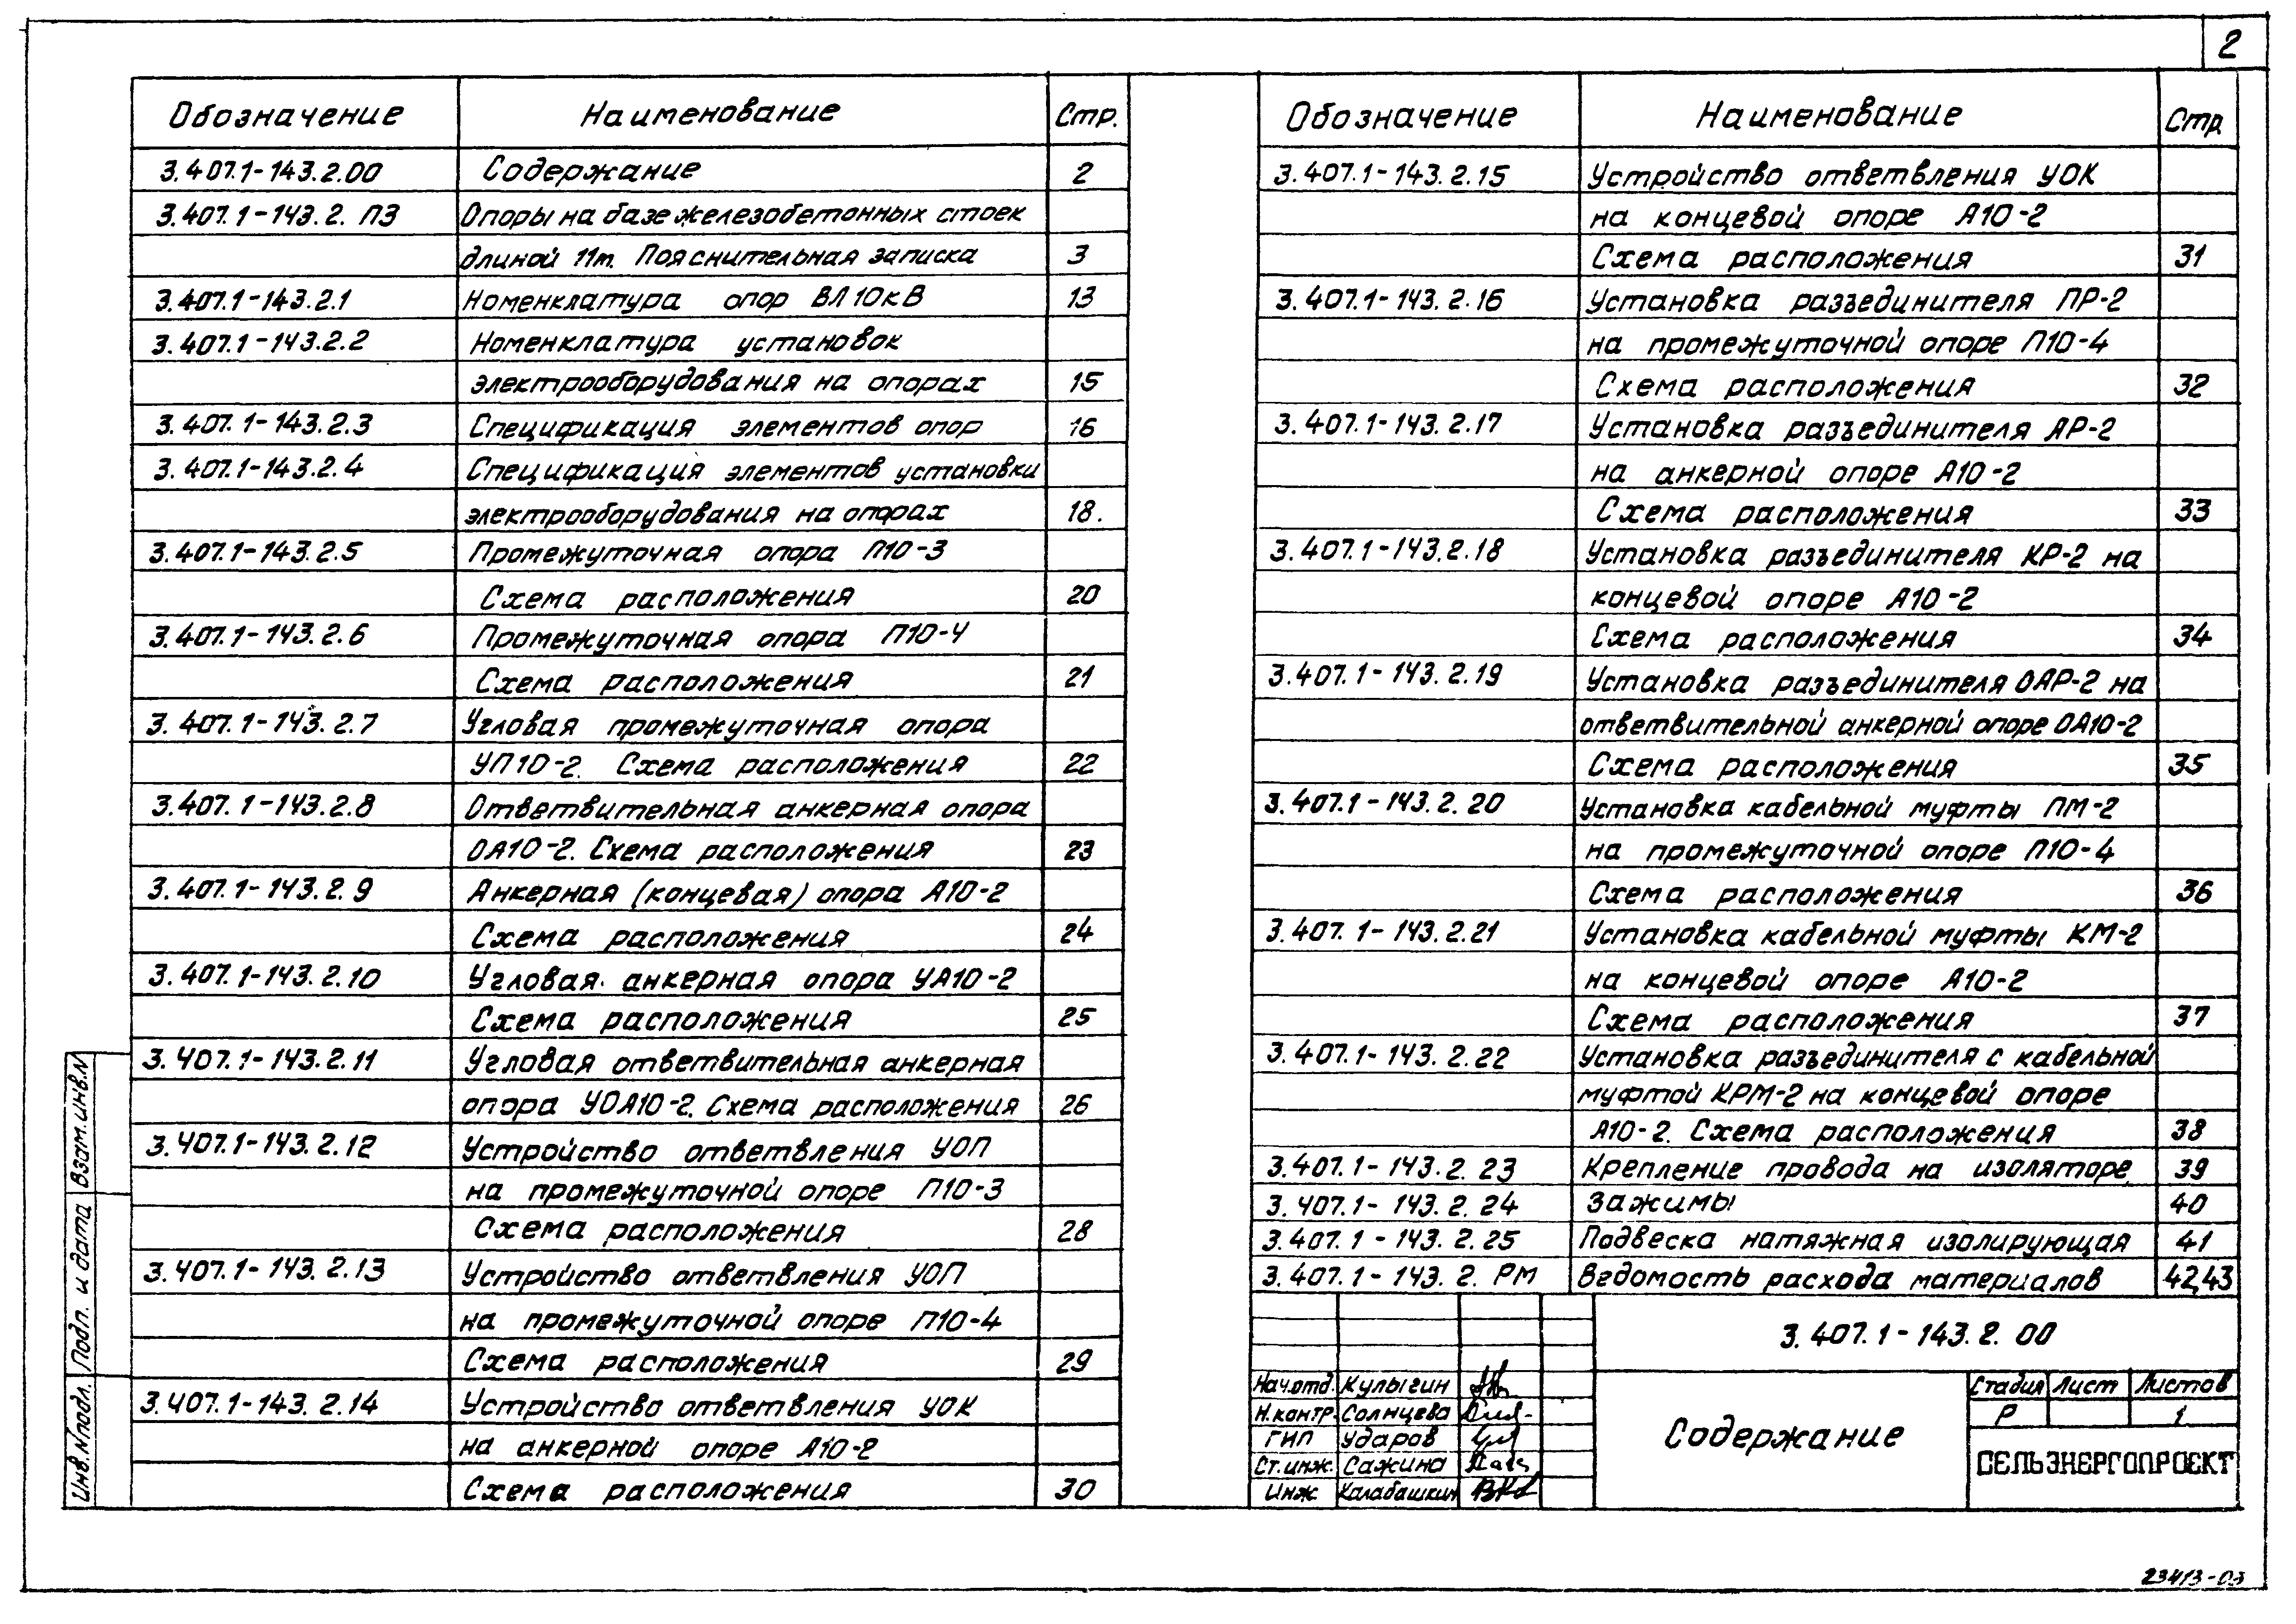 2
Обозначение Наименование Стр.
3.407.1-143.2.00 Содержание 2
3.407.1-143.2.ПЗ Опоры на базе железобетонных стоек
длиной 11m. Пояснительная записка 3
3.407.1-143.2.1 Номенклатура опор ВЛ 10кВ 13
3.407.1-143.2.2 Номенклатура установок
электрооборудования на опорах 15
3.407.1-143.2.3 Спецификация элементов опор 16
3.407.1-143.2.4 Спецификация элементов установки
электрооборудования на опорах 18.
3.407.1-143.2.5 Промежуточная опора П10-3
Схема расположения 20
3.407.1-143.2.6 Промежуточная опора П10-4
Схема расположения 21
3.407.1-143.2.7 Угловая промежуточная опора
УП10-2. Схема расположения 22
3.407.1-143.2.8 Ответвительная анкерная опора
ОА10-2. Схема расположения 23
3.407.1-143.2.9 Анкерная (концевая) опора А10-2
Схема расположения 24
3.407.1-143.2.10 Угловая анкерная опора УА10-2
Схема расположения 25
3.407.1-143.2.11 Угловая ответвительная анкерная
опора УОА10-2. Схема расположения 26
3.407.1-143.2.12 Устройство ответвления УОП
на промежуточной опоре П10-3
Схема расположения 28
3.407.1-143.2.13 Устройство ответвления УОП
на промежуточной опоре П10-4
Схема расположения 29
3.407.1-143.2.14 Устройство ответвления УОК
на анкерной опоре А10-2
Схема расположения 30
Обозначение Наименование Стр
3.407.1-143.2.15 Устройство ответвления УОК
на концевой опоре А10-2
Схема расположения 31
3.407.1-143.2.16 Установка разъединителя ПР-2
на промежуточной опоре П10-4
Схема расположения 32
3.407.1-143.2.17 Установка разъединителя АР-2
на анкерной опоре А10-2
Схема расположения 33
3.407.1-143.2.18 Установка разъединителя КР-2 на
концевой опоре А10-2
Схема расположения 34
3.407.1-143.2.19 Установка разъединителя ОАР-2 на
ответвительной анкерной опоре ОА10-2
Схема расположения 35
3.407.1-143.2.20 Установка кабельной муфты ПМ-2
на промежуточной опоре П10-4
Схема расположения 36
3.407.1-143.2.21 Установка кабельной муфты КМ-2
на концевой опоре А10-2
Схема расположения 37
3.407.1-143.2.22 Установка разъединителя с кабельной
муфтой КРМ-2 на концевой опоре
А10-2. Схема расположения 38
3.407.1-143.2.23 Крепление провода на изоляторе 39
3.407.1-143.2.24 Зажимы 40
3.407.1-143.2.25 Подвеска натяжная изолирующая 41
3.407.1-143.2.РМ Ведомость расхода материалов 42,43
3.407.1-143.2.00
Нач.отд. Кулыгин
Н.контр. Солнцева
ГИП Ударов
Ст.инж. Сажина
Инж. Калабашкин
Содержание
Стадия Лист Листов
Р 1
СЕЛЬЭНЕРГОПРОЕКТ
Инв.N подл. Подп. и дата Взам.инв.N
23413-03